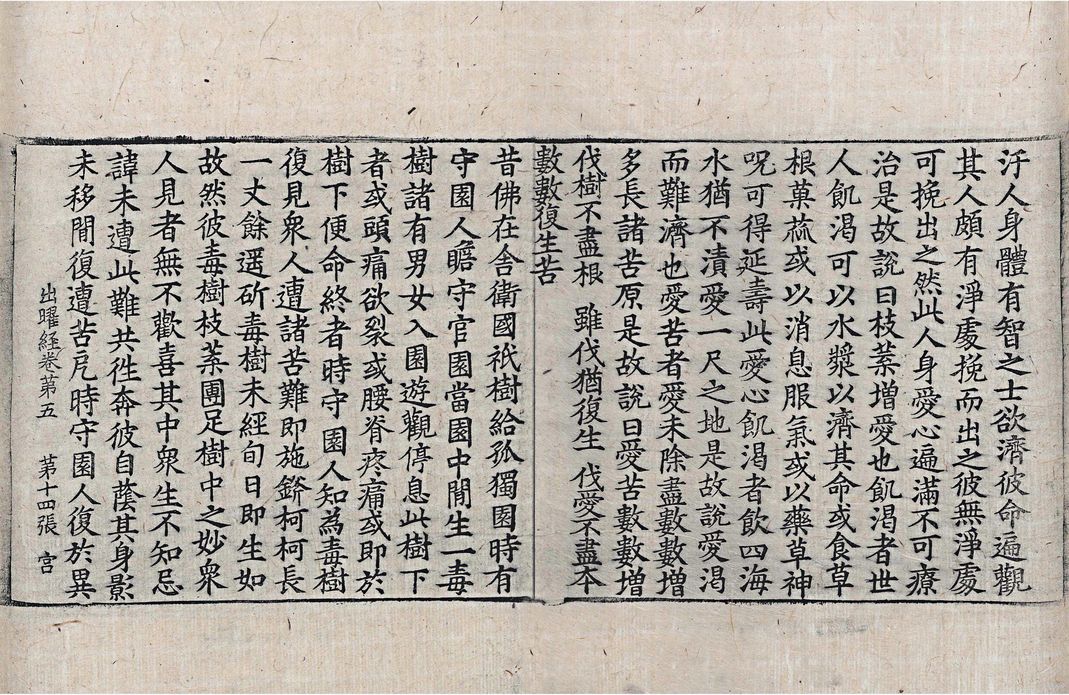 汙人身體有智之士欲濟彼命遍觀
其人頗有淨處挽而出之彼無淨處
可挽出之然此人身愛心遍滿不可療
治是故説曰枝葉增愛也飢渴者世
人飢渴可以水漿以濟其命或食草
根菓蓏或以消息服氣或以藥草神
呪可得延壽此愛心飢渴者飲四海
水猶不漬愛一尺之地是故說愛渴
而難濟也愛苦者愛未除盡數數增
多長諸苦原是故說曰愛苦數數增
伐樹不盡根 雖伐猶復生 伐愛不盡本
數數復生苦
昔佛在舍衛國祇樹給孤獨園時有
守園人瞻守官園當園中間生一毒
樹諸有男女入園遊觀停息此樹下
者或頭痛欲裂或腰脊疼痛或即於
樹下便命終者時守園人知為毒樹
復見衆人遭諸苦難即施䥥柯柯長
一丈餘遥斫毒樹未經旬日即生如
故然彼毒樹枝葉團足樹中之妙衆
人見者無不歡喜其中衆生不知忌
諱未遭此難共徃奔彼自蔭其身影
未移間復遭苦厄時守園人復於異
出曜経卷第五 第十四張 宫